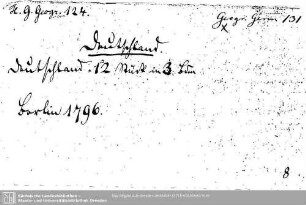 H. G. Geogr. 124.
Geogr. Germ. 131
x
Deutschland.
Deutschland. 12 Stück in 3. Bdn
Berlin 1796.
8
Sächsische Landesbibliothek -
Staats- und Universitätsbibliothek Dresden